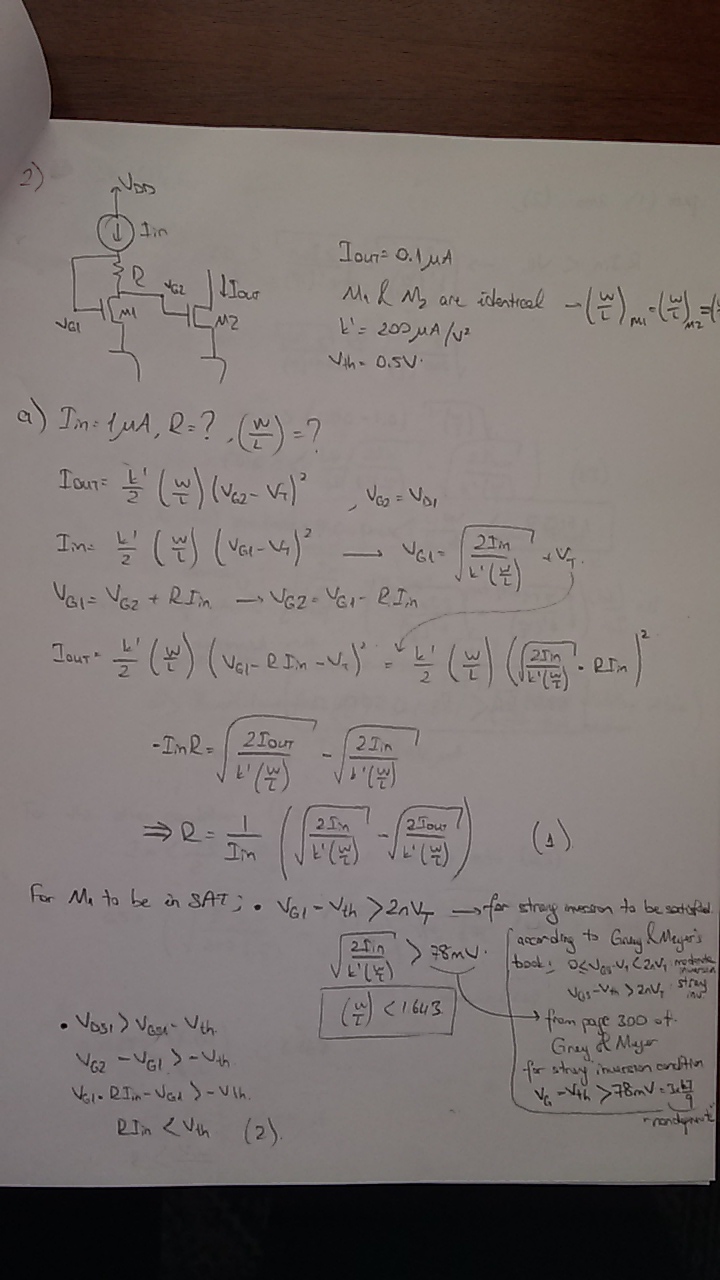 2)
VDD
Iin
R
VG2
↓Iout
VG1
M1
M2
Iout = 0.1μA
M1 & M2 are identical → (W/L)M1 = (W/L)M2 = (
k' = 200μA/V²
Vth = 0.5V.
a) Iin = 1μA, R = ?, (W/L) = ?
Iout = k'/2 (W/L) (VG2 - VT)² , VG2 = VD1
Iin = k'/2 (W/L) (VG1 - VT)² → VG1 = √(2Iin / k'(W/L)) + VT.
VG1 = VG2 + RIin → VG2 = VG1 - RIin
Iout = k'/2 (W/L) (VG1 - RIin - VT)² = k'/2 (W/L) (√(2Iin / k'(W/L)) - RIin)²
-IinR = √(2Iout / k'(W/L)) - √(2Iin / k'(W/L))
⇒ R = 1/Iin (√(2Iin / k'(W/L)) - √(2Iout / k'(W/L))) (1)
For M1 to be in SAT; • VG1 - Vth > 2nVT → for strong inversion to be satisfied
√(2Iin / k'(W/L)) > 78mV.
(W/L) < 1.643
according to Gray & Meyer's
book: 0 < VGS - VT < 2nVT moderate inversion
VGS - Vth > 2nVT strong inv
from page 300 of
Gray & Meyer
for strong inversion condition
VG - Vth > 78mV =
• VDS1 > VGS1 - Vth
VG2 - VG1 > -Vth
VG1 - RIin - VG1 > -Vth.
RIin < Vth (2).